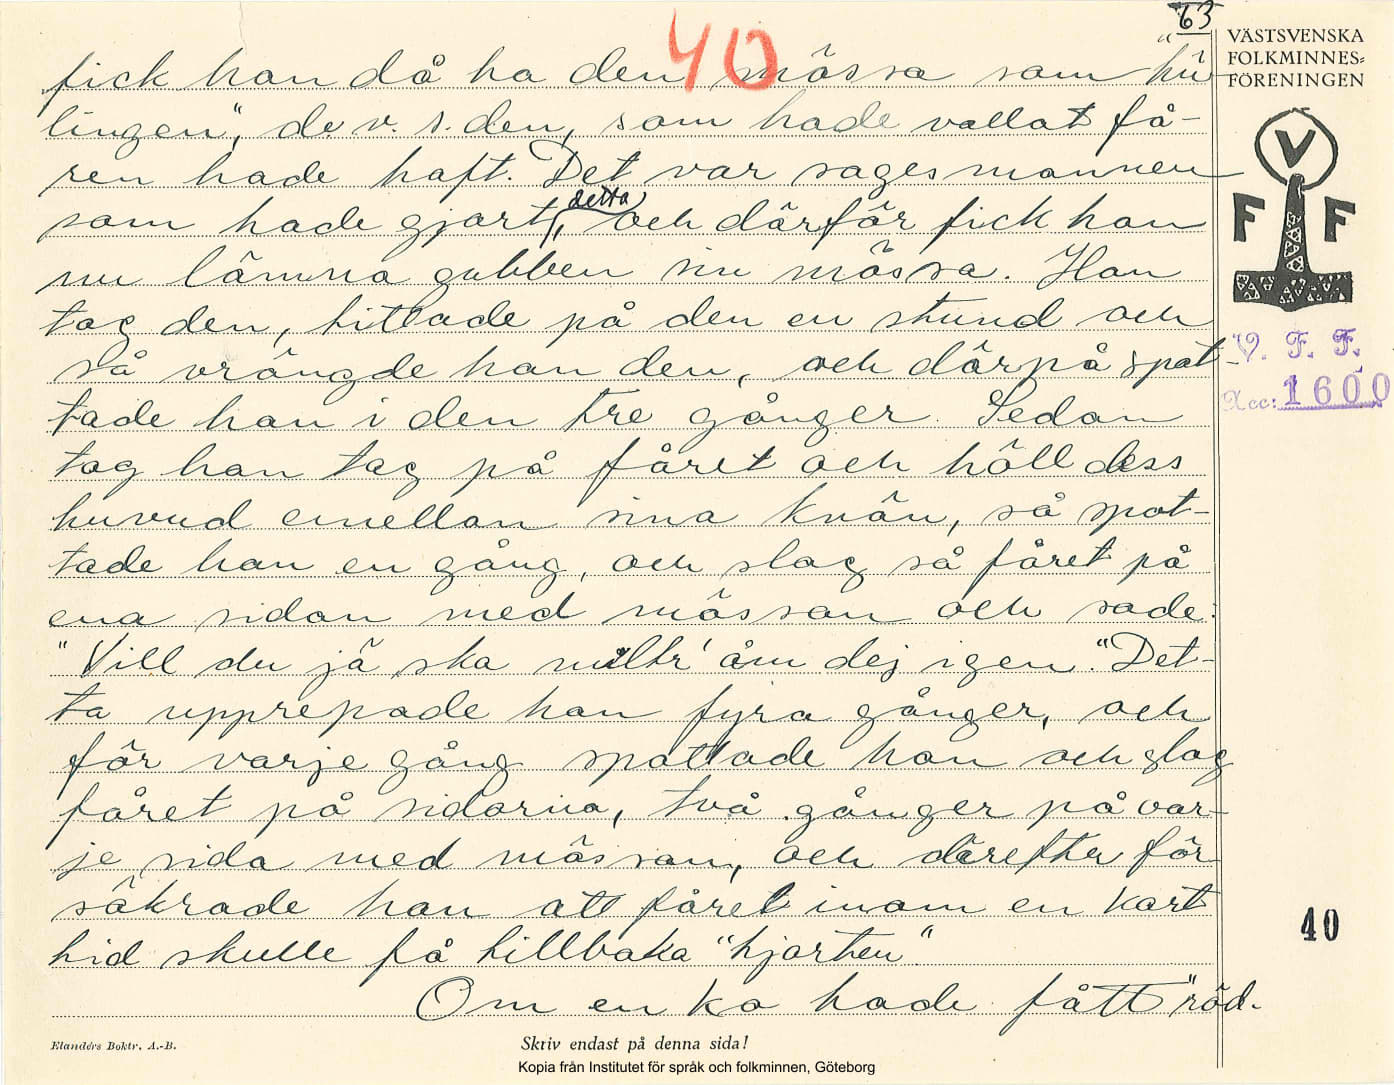 63
40
VÄSTSVENSKA
FOLKMINNES-
FÖRENINGEN
V
F F
V. F. F.
Acc: 1600
40
fick han då ha den mössa som "hü-
lingen", de v. s. den, som hade vallat få-
ren hade haft. Det var sagesmannen
detta
som hade gjort, och därför fick han
nu lämna gubben sin mössa. Han
tog den, tittade på den en stund och
så vrängde han den, och därpå spot-
tade han i den tre gånger. Sedan
tog han tag på fåret och höll dess
huvud emellan sina knän, så spot-
tade han en gång, och slog så fåret på
ena sidan med mössan och sade:
"Vill du jä ska åm dej igen." Det-
ta upprepade han fyra gånger, och
för varje gång spottade han och slog
fåret på sidorna, två gånger på var-
je sida med mössan, och därefter för
säkrade han att fåret inom en kort
tid skulle få tillbaka "hjorten".
Om en ko hade fått "röd-
Elanders Boktr. A.-B.
Skriv endast på denna sida!
Kopia från Institutet för språk och folkminnen, Göteborg